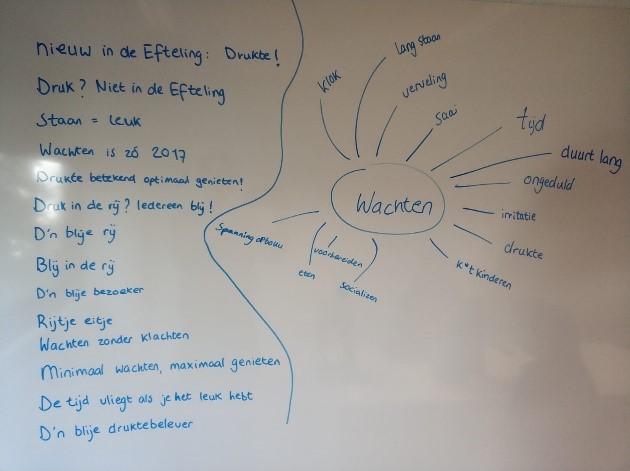 nieuw in de Efteling: Drukte!
Druk? Niet in de Efteling
Staan = leuk
Wachten is zó 2017
Drukte betekend optimaal genieten!
Druk in de rij? Iedereen blij!
D'n blije rij
Blij in de rij
D'n blije bezoeker
Rijtje eitje
Wachten zonder klachten
Minimaal wachten, maximaal genieten
De tijd vliegt als je het leuk hebt
D'n blije druktebelever
Wachten
klok
lang staan
verveling
saai
tijd
duurt lang
ongeduld
irritatie
drukte
k*t kinderen
socializen
voorbereiden
eten
Spanning opbouw